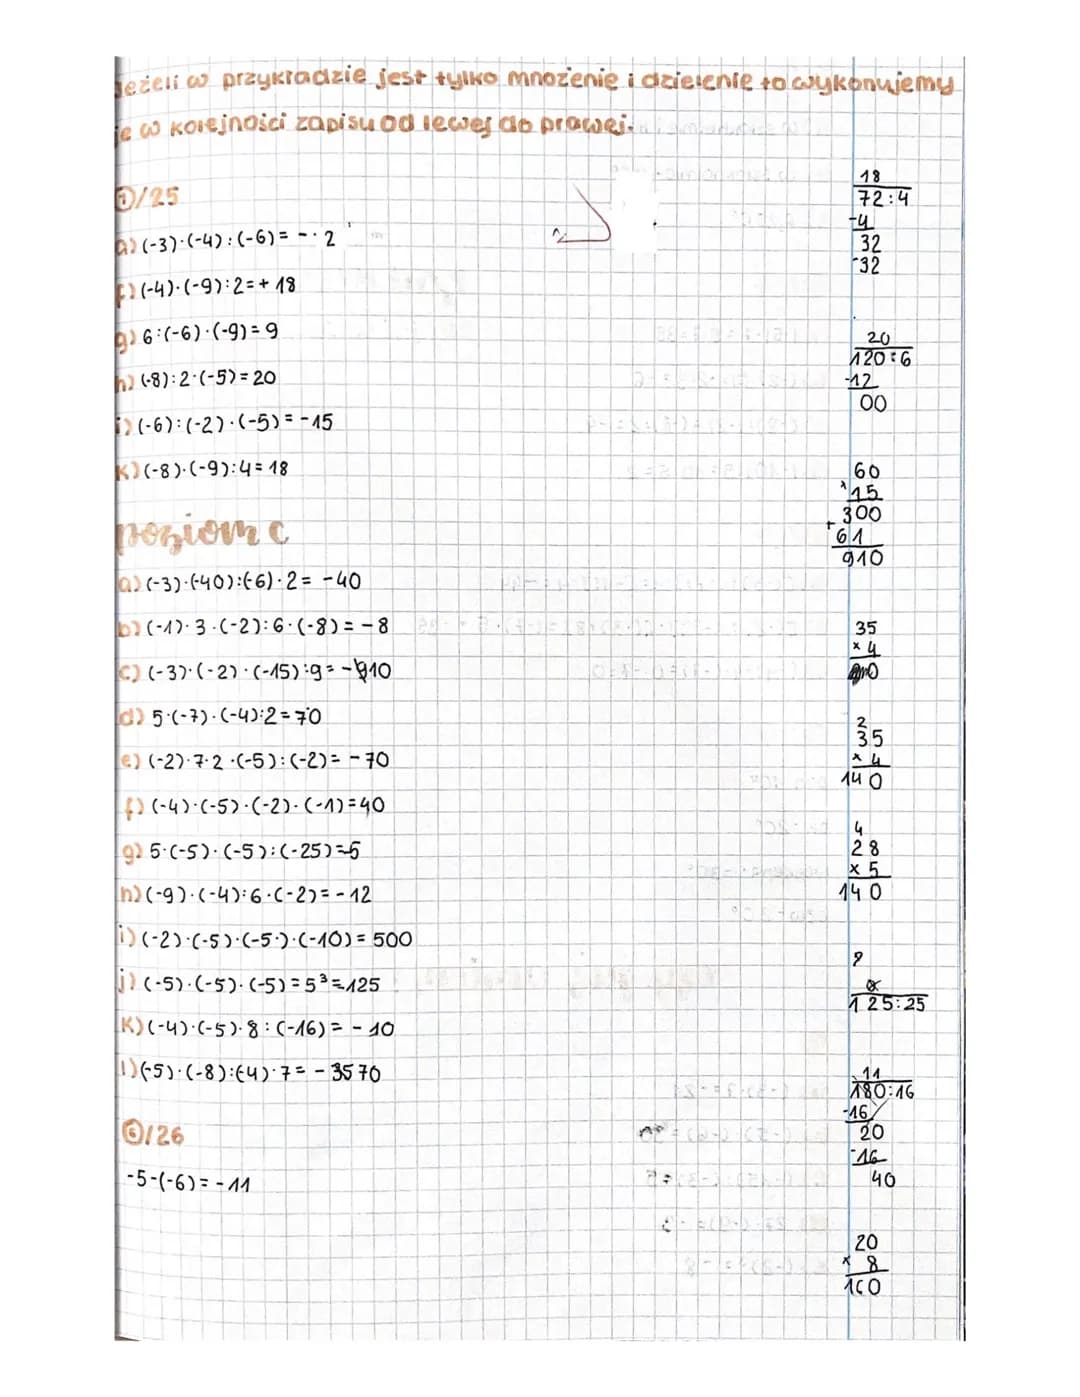 Jeżeli w przykładzie jest tylko mnożenie i dzielenie to wykonujemy
je w kolejności zapisu od lewej do prawej.
①/25
a) (-3)·(-4):(-6)= -·2
f) (-4)·(-9):2=+18
g) 6:(-6)·(-9)=9
h) (-8):2·(-5)=20
i) (-6):(-2)·(-5)=-15
k) (-8)·(-9):4=18
poziom C
a) (-3)·(-40):(-6)·2=-40
b) (-1)·3·(-2):6·(-8)=-8
c) (-3)·(-2)·(-15):9=-910
d) 5·(-7)·(-4):2=70
e) (-2)·7·2·(-5):(-2)=-70
f) (-4)·(-5)·(-2)·(-1)=40
g) 5·(-5)·(-5):(-25)=-5
h) (-9)·(-4):6·(-2)=-12
i) (-2)·(-5)·(-5)·(-10)=500
j) (-5)·(-5)·(-5)=5³=125
k) (-4)·(-5)·8:(-16)=-10
l) (-5)·(-8):(-4)·7=-3570
⑥/26
-5-(-6)=-11
18
72:4
-4
32
-32
20
120:6
-12
00
60
x15
300
+61
910
35
x4
2
35
x4
140
4
28
x5
140
125:25
11
180:16
-16
20
-16
40
20
x8
160